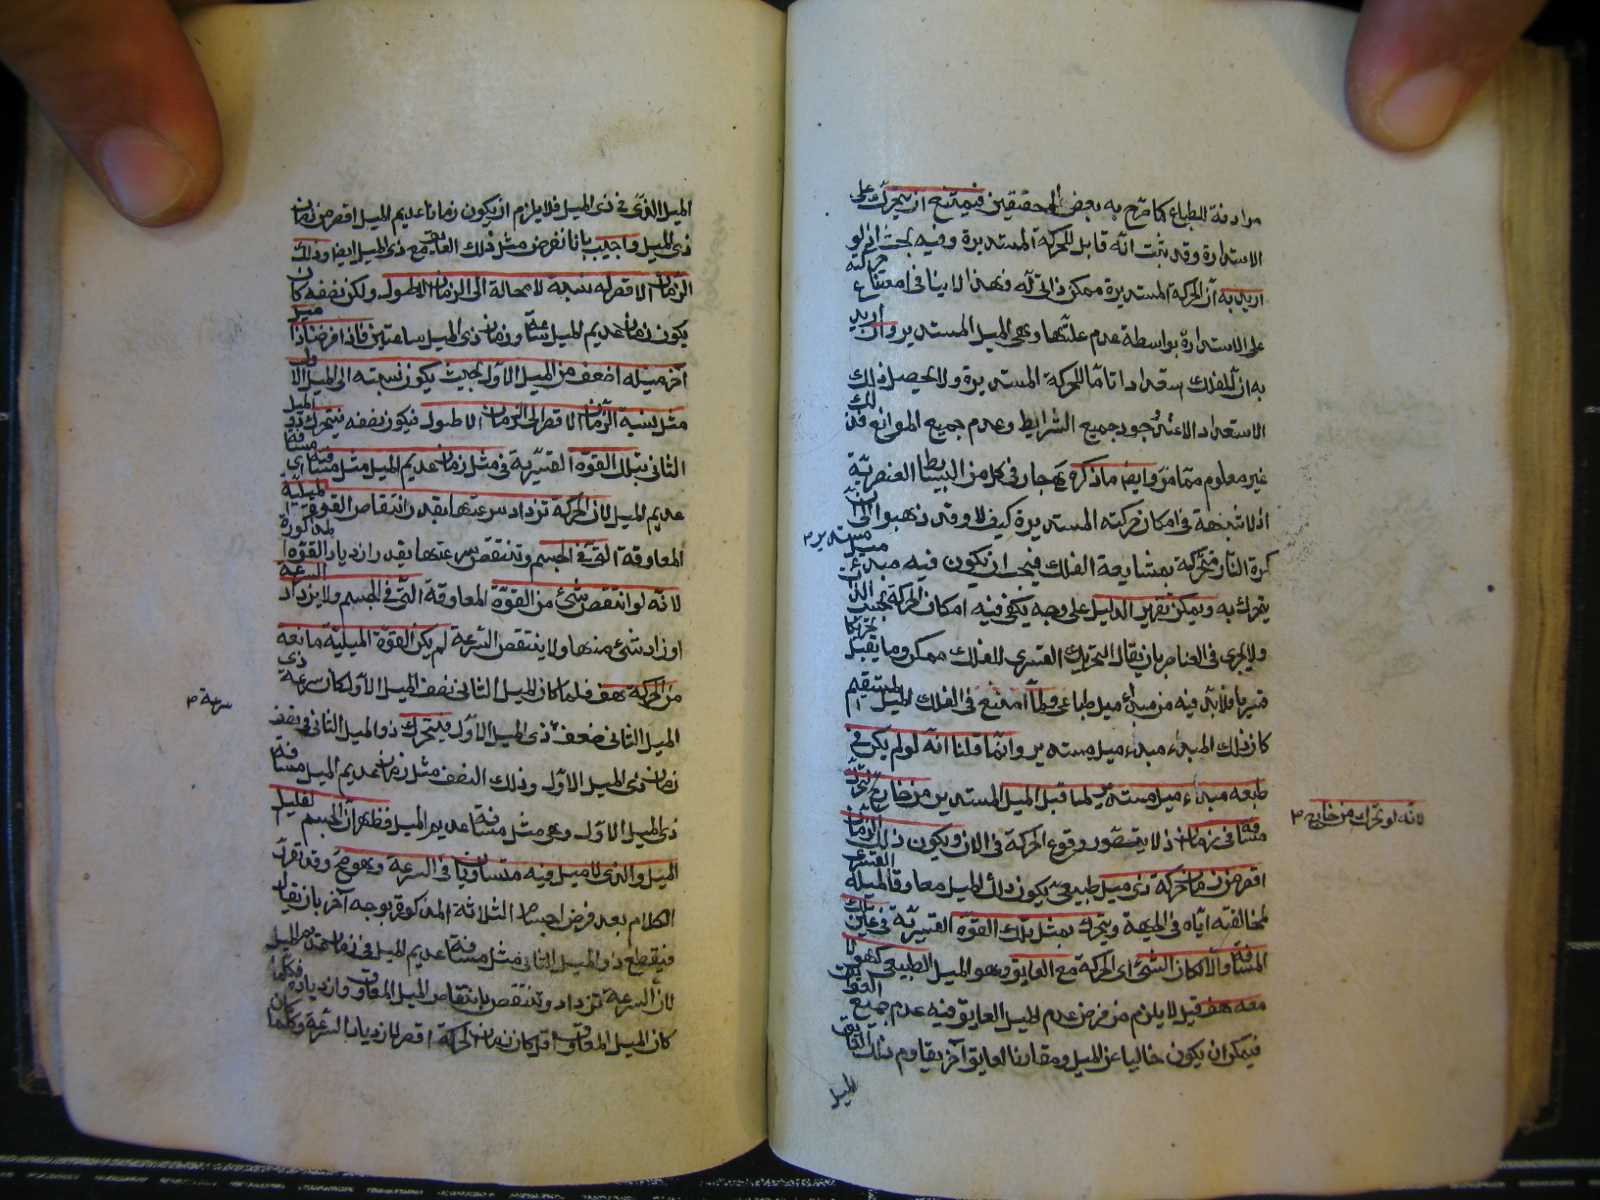 مرادفة للطباع كما صرح به بعض المحققين فيمتنع ان يتحرك على
الاستدارة وقد ثبت انه قابل للحركة المستديرة وفيه بحث لانه لو
اريد به ان الحركة المستديرة ممكن ذاتي له فهذا لا ينافي امتناع حركته
على الاستدارة بواسطة عدم علتها وهي الميل المستدير وان اريد
به ان للفلك استعدادا تاما للحركة المستديرة ولا يحصل ذلك
الاستعداد الا عند وجود جميع الشرايط وعدم جميع الموانع فذلك
غير معلوم مما مر وايضا ما ذكره جار في كل من البسايط العنصرية
اذ لا شبهة في امكان حركته المستديرة كيف لا وقد ذهبوا الى ان
كرة النار متحركة بمشايعة الفلك فيجب ان تكون فيه مبدء ميل
مستدير
يتحرك به ويمكن تقرير الدليل على وجه يكفي فيه امكان الحركة بحسب الذات
ولا يجري في العناصر بان يقال التحريك القسري للفلك ممكن وما يقبل تحريكا
قسريا فلابد فيه من مبدأ ميل طباعي ولما امتنع في الفلك الميل المستقيم
كان ذلك المبدء مبدء ميل مستدير وانما قلنا انه لو لم يكن في
طبعه مبدء ميل مستدير لما قبل الميل المستدير من خارج
لانه لو تحرك من خارج
مسافة في زمان اذ لا يتصور وقوع الحركة في الان ويكون ذلك الزمان
اقصر من زمان حركة ذي ميل طبيعي يكون ذلك الميل معاوقا لميله القسري
لمخالفته اياه في الجهة ويتحرك بمثل تلك القوة القسرية في عين تلك
المسافة والا لكان الشيء اي الحركة مع العايق وهو الميل الطبيعي كهو لا
معه هف قيل لا يلزم من فرض عدم الميل العايق فيه عدم جميع العوايق
فيمكن ان يكون خاليا عن الميل ومقارنا لعايق آخر يقاوم ذلك العايق
الميل
الميل الذي في ذي الميل فلا يلزم ان يكون زمان عديم الميل اقصر من زمان
ذي الميل واجيب بانا نفرض مثل ذلك العايق مع ذي الميل ايضا وذلك
الزمان الاقصر له نسبة لا محالة الى الزمان الاطول ولكن نصفه كان
يكون زمان عديم الميل ساعة وزمان ذي الميل ساعتين فاذا فرضنا ذا ميل
آخر ميله اضعف من الميل الاول بحيث يكون نسبته الى الميل الاول
مثل نسبة الزمان الاقصر الى الزمان الاطول فيكون نصفه فيتحرك ذو الميل
الثاني بتلك القوة القسرية في مثل زمان عديم الميل مثل مسافته اي مسافة
عديم الميل لان الحركة تزداد سرعتها بقدر انتقاص القوة الميلية
المعاوقة التي في الجسم وتنتقص سرعتها بقدر ازدياد القوة المذكورة
لانه لو انتقص شيء من القوة المعاوقة التي في الجسم ولا يزداد السرعة
او زاد شيء منها ولا ينتقص السرعة لم يكن القوة الميلية مانعة
من الحركة هف فلما كان الميل الثاني نصف الميل الاول كان سرعة ذي
الميل الثاني ضعف ذي الميل الاول ويتحرك ذو الميل الثاني في نصف
سرعة
زمان ذي الميل الاول وذلك النصف مثل زمان عديم الميل مسافة
ذي الميل الاول وهي مثل مسافة عديم الميل فظهر ان الجسم القليل
الميل والذي لا ميل فيه متساويان في السرعة وهو مح وقد تقرر
الكلام بعد فرض اجسام الثلاثة المذكورة بوجه آخر بان يقال
فيقطع ذو الميل الثاني مثل مسافة عديم الميل في زمان عديم الميل
لان السرعة تزداد وتنتقص بانتقاص الميل المعاوق وازدياده فكلما
كان الميل المعاوق اقل كان زمان الحركة اقصر لازدياد السرعة وكلما كان